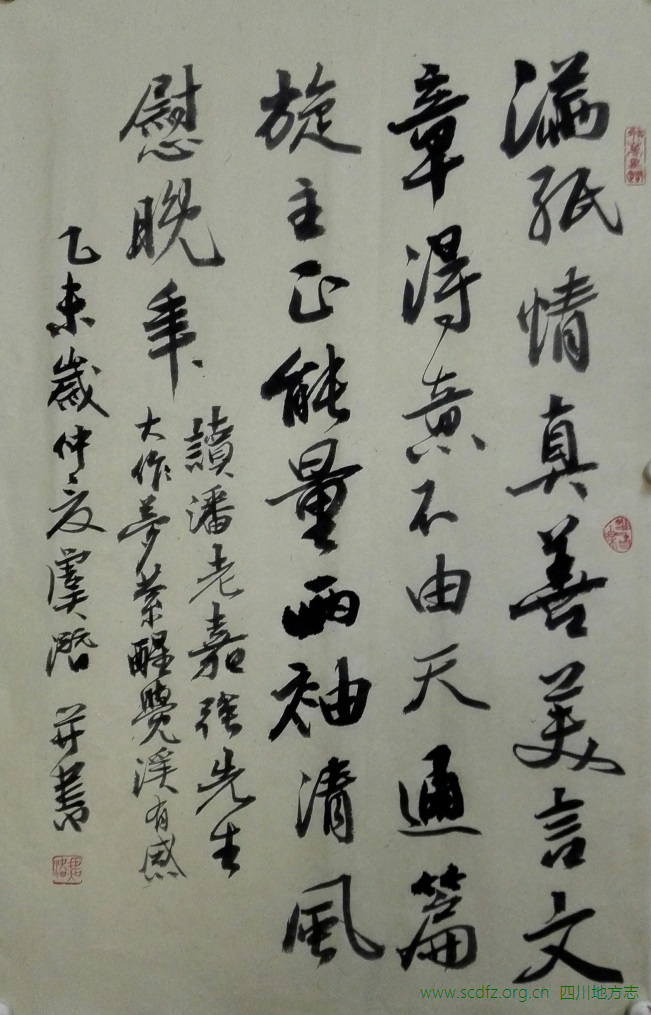 满紙情真善美言文
章得意不由天通篇
旋主正能量两袖清風
慰晚年
讀潘老嘉強先生
大作夢縈醒覺溪有感
乙未歲仲夏虞階并書
www.scdfz.org.cn 四川地方志